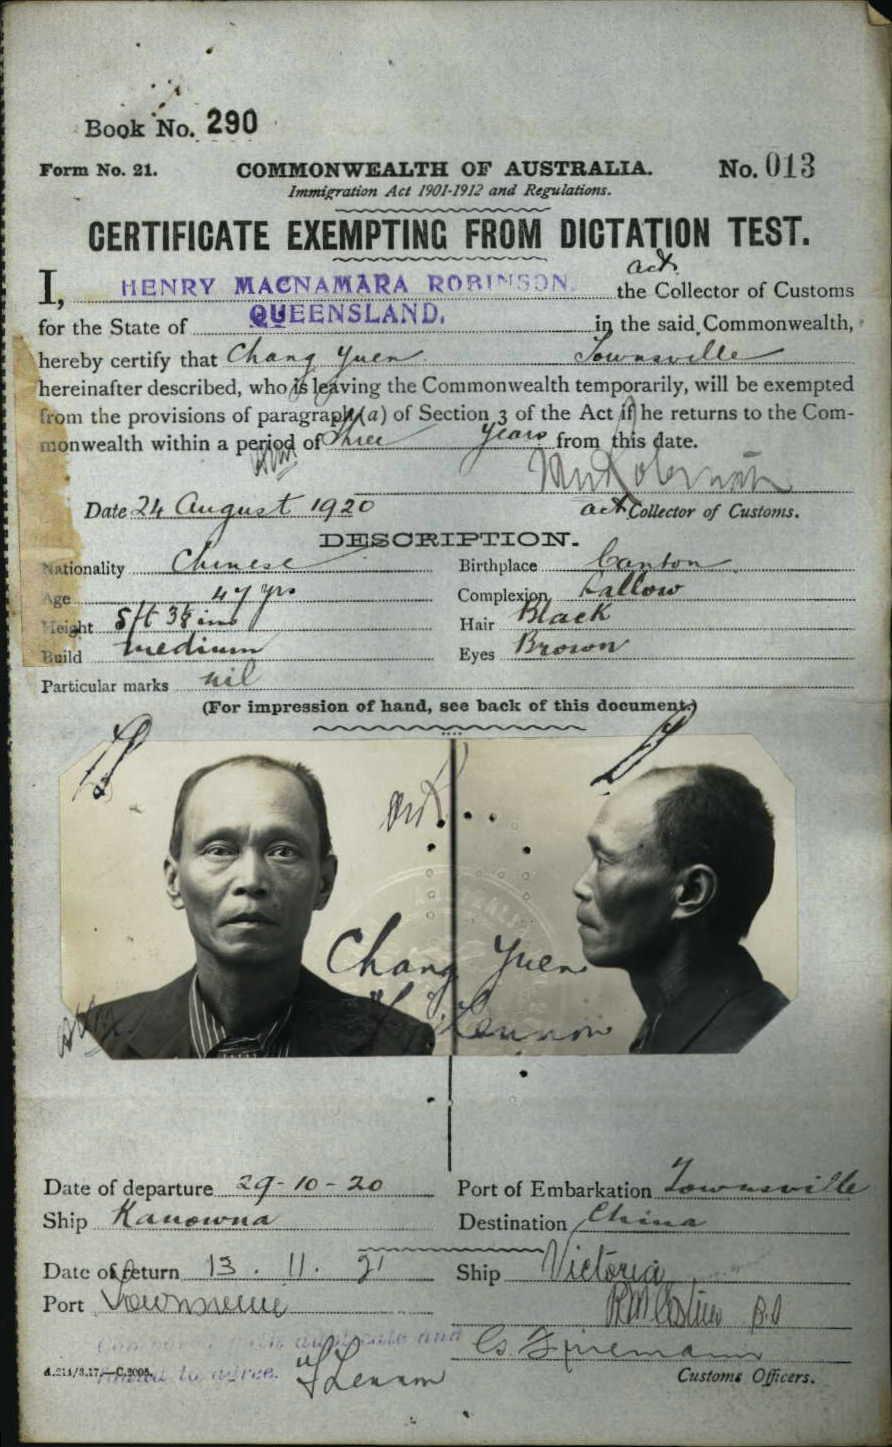 Book No. 290
Form No. 21. COMMONWEALTH OF AUSTRALIA. No. 013
Immigration Act 1901-1912 and Regulations.
CERTIFICATE EXEMPTING FROM DICTATION TEST.
act
I, HENRY MACNAMARA ROBINSON. the Collector of Customs
for the State of QUEENSLAND. in the said Commonwealth,
hereby certify that Chang Yuen Townsville
hereinafter described, who is leaving the Commonwealth temporarily, will be exempted
from the provisions of paragraph (a) of Section 3 of the Act if he returns to the Com-
monwealth within a period of Three Years from this date.
Date 24 August 1920 act Collector of Customs.
DESCRIPTION.
Nationality Chinese Birthplace Canton
Age 47 yrs Complexion Sallow
Height 5ft 3½ins Hair Black
Build medium Eyes Brown
Particular marks nil
(For impression of hand, see back of this document.)
Chang Yuen
Lennon
Date of departure 29-10-20 Port of Embarkation Townsville
Ship Kanowna Destination China
Date of return 13. 11. 21 Ship Victoria
Port Townsville
and
to agree. Lennon
A.211/3.17.—C.3008. Customs Officers.